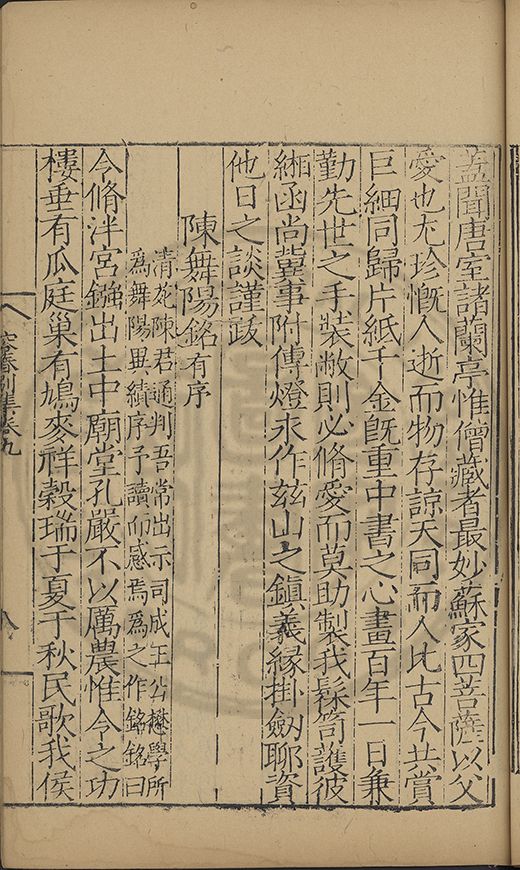 蓋聞唐室諸蘭亭惟僧藏者最妙蘇家四菩薩以父
愛也尤珍慨人逝而物存諒天同而人比古今共賞
巨細同歸片紙千金旣重中書之心畫百年一日兼
勤先世之手裝敝則必脩愛而莫助製我髹笥護彼
緗函尚冀事附傳燈永作玆山之鎮義緣掛劒聊資
他日之談謹跋
陳舞陽銘有序
清苑陳君通判吾常出示司成王公懋學所
爲舞陽異績序予讀而感焉爲之作銘銘曰
令脩泮宮鏹出土中廟堂孔嚴不以厲農惟令之功
樓垂有瓜庭巢有鳩麥祥穀瑞于夏于秋民歌我侯
卷九
八